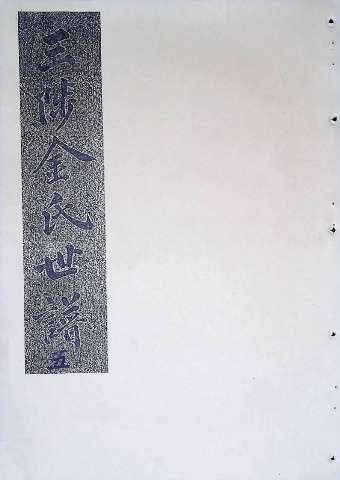 三陟金氏世譜 五